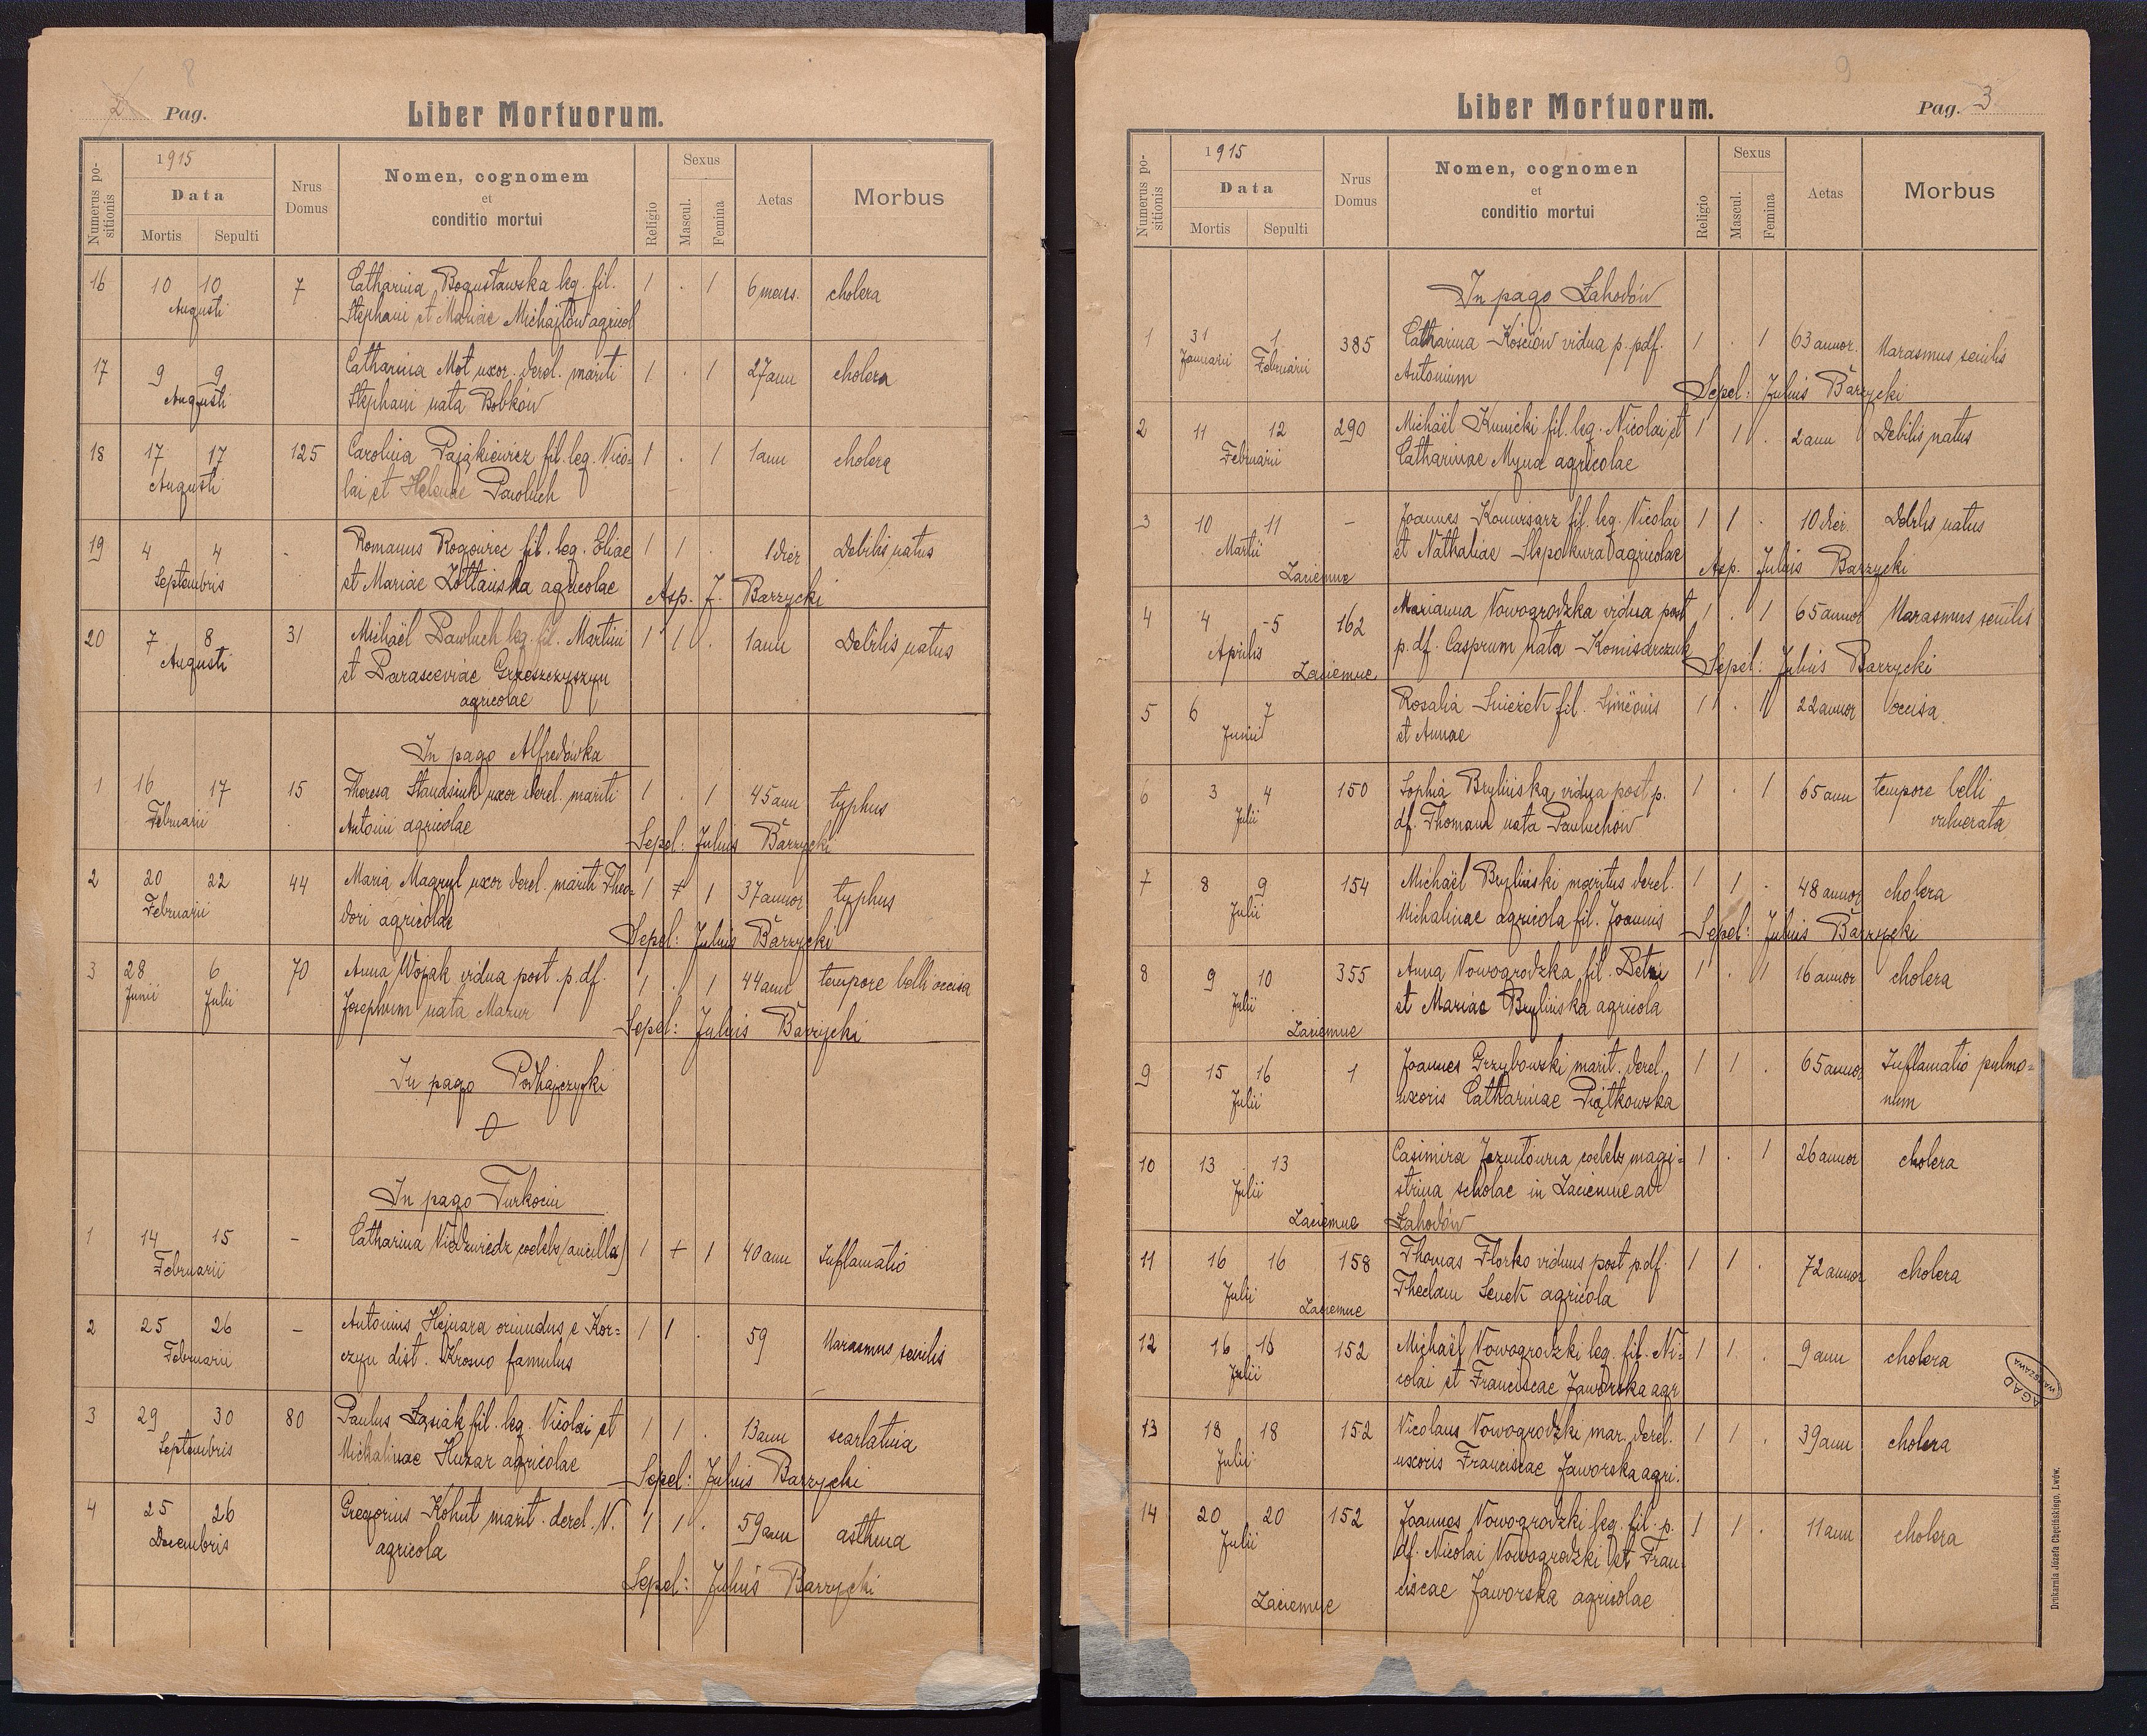 2 Pag.
8
Liber Mortuorum.
Numerus positionis
1915
Data
Mortis Sepulti
Nrus Domus
Nomen, cognomem
et
conditio mortui
Religio
Sexus
Mascul. Femina
Aetas
Morbus
16 10 10 7 Catharina Bogusławska leg. fil. 1 . 1 6 mens. cholera
Augusti Stephani et Mariae Michajłów agricol
17 9 9 Catharina Mot uxor. derel. mariti 1 . 1 27 ann cholera
Augusti Stephani nata Bobków
18 17 17 125 Carolina Pająkiewicz fil. leg. Nico= 1 . 1 1 ann cholera
Augusti lai et Helenae Pawluch
19 4 4 - Romanus Rogowiec fil. leg. Eliae 1 1 . 1 dier Debilis natus
Septembris et Mariae Zottańska agricolae Asp. J. Barzycki
20 7 8 31 Michaël Pawluch leg. fil. Martini 1 1 . 1 ann Debilis natus
Augusti et Parasceviae Grzeszczyszyn
agricolae
In pago Alfredówka
1 16 17 15 Theresa Standsiuk uxor derel. mariti 1 . 1 45 ann typhus
Februarii Antonii agricolae Sepel: Julius Barzycki
2 20 22 44 Maria Magryl uxor derel. mariti Theo= 1 + 1 37 annor typhus
Februarii dori agricolae Sepel: Julius Barzycki
3 28 6 70 Anna Wojak vidua post p. df. 1 . 1 44 ann tempore belli occisa
Junii Julii Josephum nata Mazur Sepel: Julius Barzycki
In pago Podhajczyki
In pago Turkocin
1 14 15 - Catharina Niedzwiedz coelebs (ancilla) 1 + 1 40 ann Inflamatio
Februarii
2 25 26 - Antonius Hejnara oriundus e Kor= 1 1 . 59 Marasmus senilis
Februarii czyn dist. Krosno famulus
3 29 30 80 Paulus Łasiak fil. leg. Nicolai et 1 1 . 13 ann scarlatina
Septembris Michalinae Huzar agricolae Sepel: Julius Barzycki
4 25 26 Gregorius Kohut marit. derel. N. 1 1 . 59 ann asthma
Decembris agricola
Sepel: Julius Barzycki
9
Liber Mortuorum.
Pag. 3
Numerus positionis
1915
Data
Mortis Sepulti
Nrus Domus
Nomen, cognomen
et
conditio mortui
Religio
Sexus
Mascul. Femina
Aetas
Morbus
In pago Łahodów
1 31 1. 385 Catharina Kościów vidua p. pdf. 1 . 1 63 annor. Marasmus senilis
Januarii Februarii Antonium Sepel: Julius Barzycki
2 11 12 290 Michaël Kunicki fil. leg. Nicolai et 1 1 . 2 ann Debilis natus
Februarii Catharinae Myna agricolae
3 10 11 - Joannes Komisarz fil. leg. Nicolai 1 1 . 10 dier. Debilis natus
Martii et Nathaliae Slepokura agricolae Asp. Julius Barzycki
Zaciemne
4 4 5 162 Marianna Nowogrodzka vidua post 1 . 1 65 annor Marasmus senilis
Aprilis p. df. Casprum nata Komisarczuk Sepel: Julius Barzycki
Zaciemne
5 6 7 Rosalia Snieżek fil. Simeonis 1 . 1 22 annor occisa
Junii et Annae
6 3 4 150 Sophia Brylińska vidua post p. 1 . 1 65 ann tempore belli
Julii df. Thomam nata Pawluchów vulnerata
7 8 9 154 Michaël Bryliński maritus derel. 1 1 . 48 annor cholera
Julii Michalinae agricola fil. Joannis Sepel: Julius Barzycki
8 9 10 355 Anna Nowogrodzka fil. Petri 1 . 1 16 annor cholera
Julii et Mariae Brylińska agricola
Zaciemne
9 15 16 1 Joannes Grzybowski marit. derel. 1 1 . 65 annor Inflamatio pulmo=
Julii uxoris Catharinae Piątkowska num
10 13 13 Casimira Jezuitówna coelebs magi= 1 . 1 26 annor cholera
Julii strina scholae in Zaciemne ad
Zaciemne Łahodów
11 16 16 158 Thomas Florko viduus post pdf. 1 1 . 72 annor cholera
Julii Theclam Senek agricola
Zaciemne
12 16 18 152 Michaël Nowogrodzki leg. fil. Ni= 1 1 . 9 ann cholera
Julii colai et Franciscae Jaworska agr
13 18 18 152 Nicolaus Nowogrodzki mar. derel. 1 1 . 39 ann cholera
Julii uxoris Franciscae Jaworska agri.
14 20 20 152 Joannes Nowogrodzki leg. fil. p. 1 1 . 11 ann cholera
Julii df. Nicolai Nowogrodzki et Fran=
ciscae Jaworska agricolae
Zaciemne
AGAD
WARSZAWA
Drukarnia Józefa Chęcińskiego, Lwów.